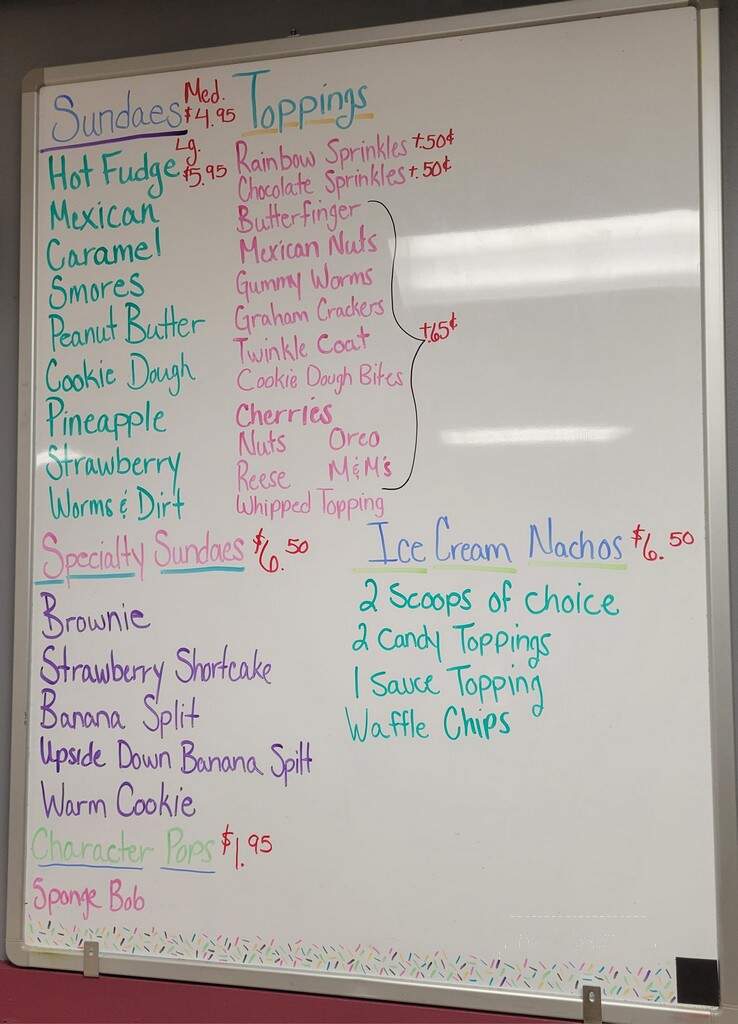 Sundaes Med. $4.95
Lg. $5.95
Hot Fudge
Mexican
Caramel
Smores
Peanut Butter
Cookie Dough
Pineapple
Strawberry
Worms & Dirt
Toppings
Rainbow Sprinkles +.50¢
Chocolate Sprinkles +.50¢
Butterfinger
Mexican Nuts
Gummy Worms
Graham Crackers
Twinkle Coat
Cookie Dough Bites
Cherries
Nuts Oreo
Reese M&M's
Whipped Topping
+.65¢
Specialty Sundaes $6.50
Brownie
Strawberry Shortcake
Banana Split
Upside Down Banana Split
Warm Cookie
Ice Cream Nachos $6.50
2 Scoops of choice
2 Candy Toppings
1 Sauce Topping
Waffle Chips
Character Pops $1.95
Sponge Bob